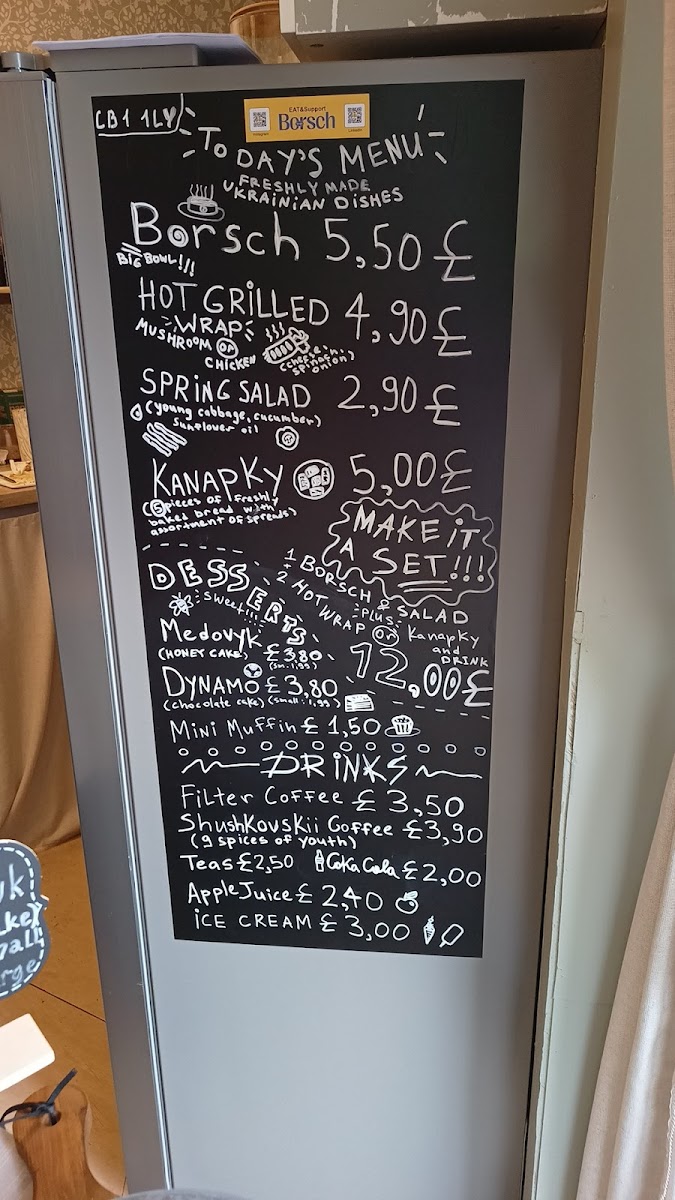 CB1 1LY
EAT&Support
Borsch
Instagram
LinkedIn
TODAY'S MENU
FRESHLY MADE
UKRAINIAN DISHES
Borsch 5,50 £
BIG BOWL!!!
HOT GRILLED 4,90 £
WRAP
MUSHROOM OR
CHICKEN
spinach,
onion)
SPRING SALAD 2,90 £
(young cabbage, cucumber)
sunflower oil
KANAPKY 5,00 £
(5 pieces of freshly
baked bread with
assortment of spreads)
MAKE iT
A SET!!!
1 BORSCH & SALAD
+ PLUS
2 HOT WRAP OR Kanapky
and
DRINK
12,00 £
DESSERTS
Sweet!!!
Medovyk
(HONEY CAKE) £ 3,80
(sm: 1,99)
DYNAMO £ 3,80
(chocolate cake) (small: 1,99)
Mini Muffin £ 1,50
DRiNKS
Filter Coffee £ 3,50
ShushKovskii Coffee £3,90
(9 spices of youth)
Teas £2,50 Coka Cola £ 2,00
Apple Juice £ 2,40
iCE CREAM £ 3,00